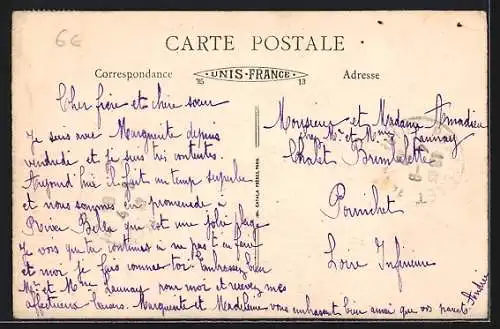 6€
CARTE POSTALE
Correspondance
UNIS-FRANCE
35 13
Adresse
Cher frère et chère sœur
Je suis avec Marguerite depuis
vendredi et je suis très contente.
Aujourd'hui il fait un temps superbe
et nous sommes en promenade à
Riva Bella qui est une jolie plage
Je vois que tu continues à ne pas t'en faire
et moi je fais comme toi. Embrassez bien
Mr et Mme Launay pour moi et recevez mes
affectueux baisers. Marguerite et Madeleine vous embrassent bien ainsi que vos parents. Andrée
Monsieur et Madame Amadieu
chez Mr et Mme Launay
Chalet
Pornichet
Loire Inférieure